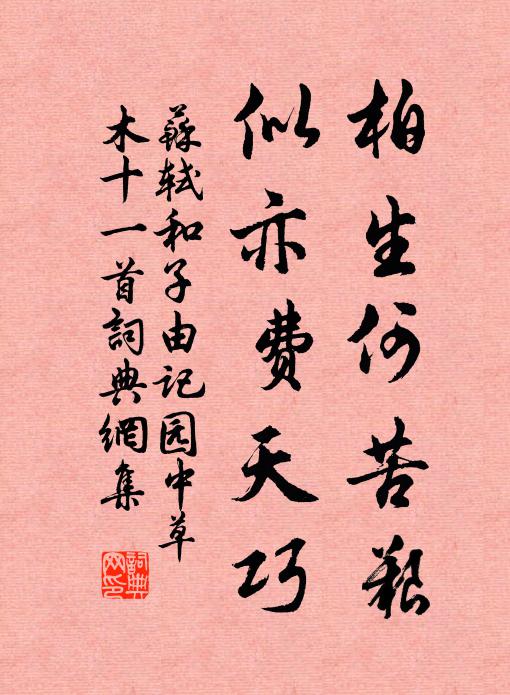 柏生何苦艱
似亦費天巧
蘇轼和子由记园中草
木十一首詞典網集
詞典网印